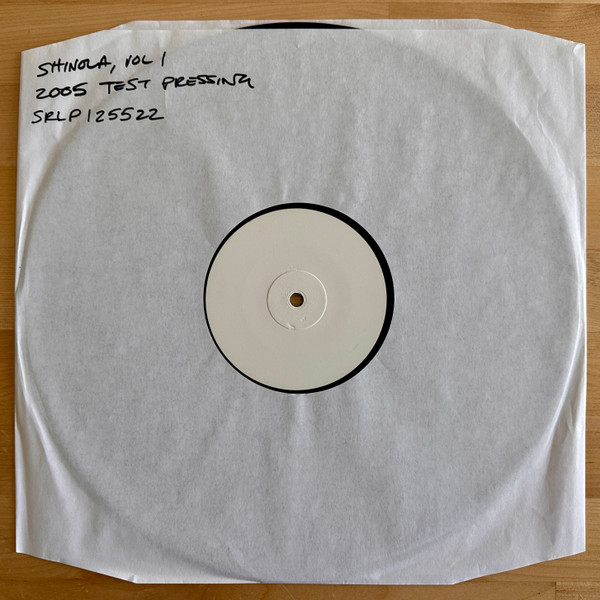 SHINOLA, VOL 1
2005 TEST PRESSING
SRLP125522